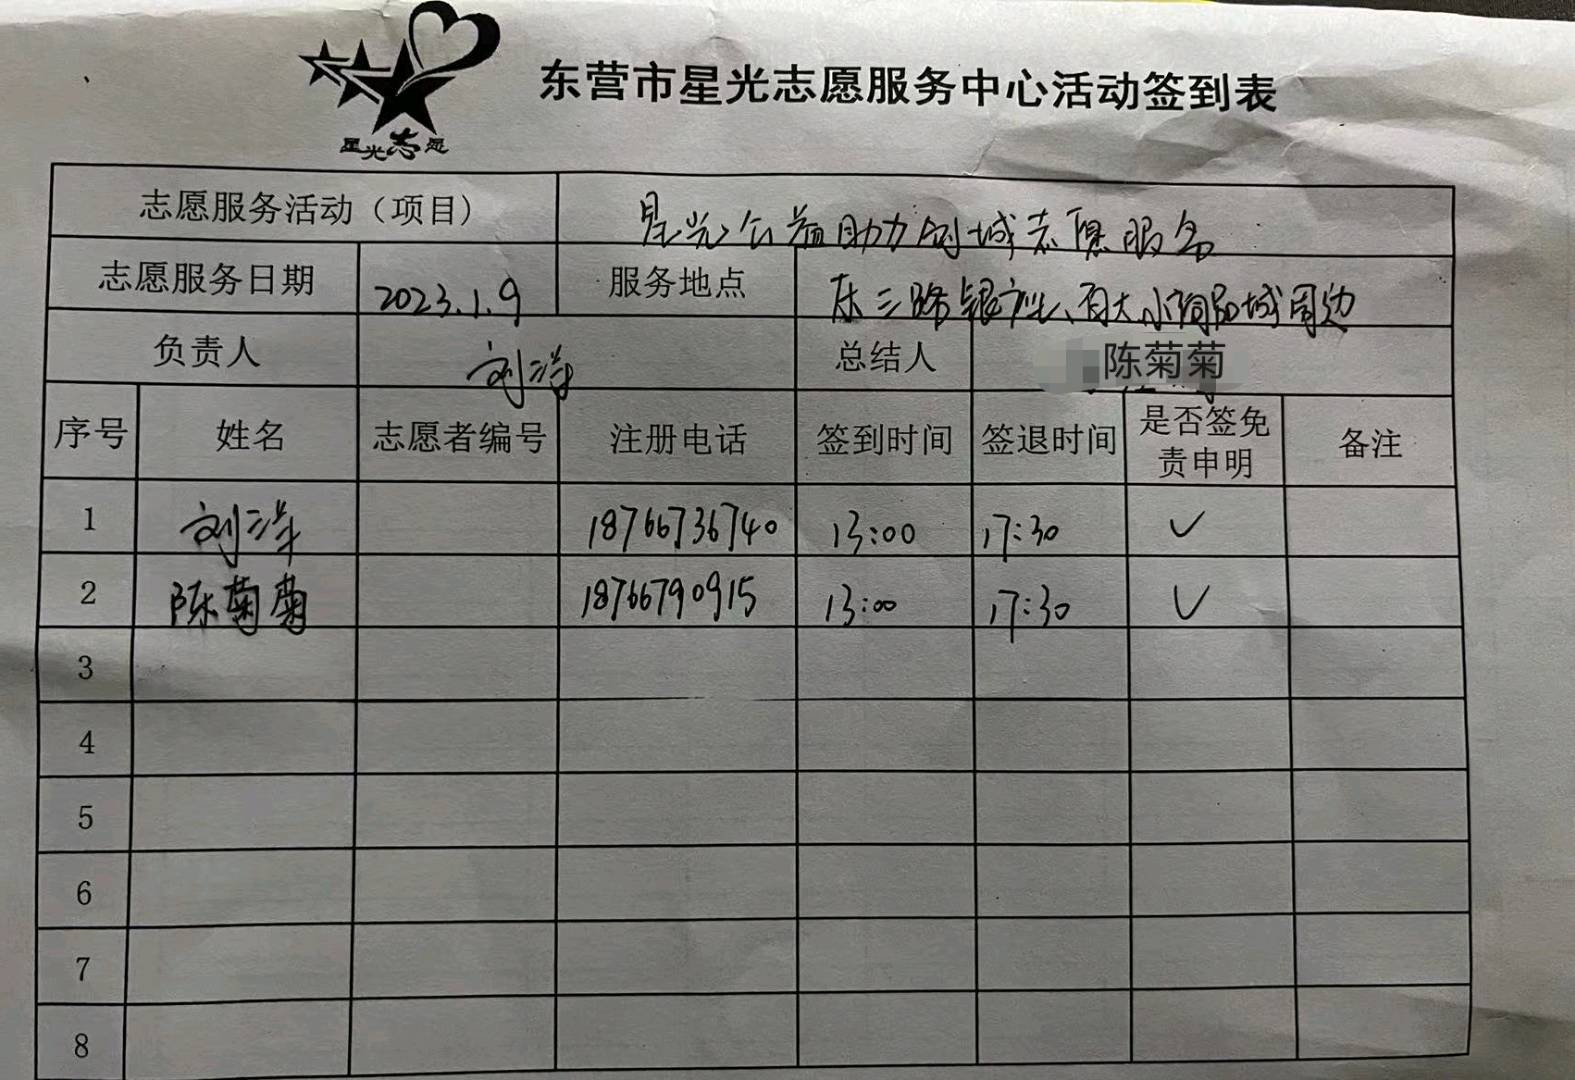 星光志愿
东营市星光志愿服务中心活动签到表
志愿服务活动（项目） 星光公益助力创城志愿服务
志愿服务日期 2023.1.9 服务地点 东三路银座、百大小商品城周边
负责人 刘洋 总结人 陈菊菊
序号 姓名 志愿者编号 注册电话 签到时间 签退时间 是否签免责申明 备注
1 刘洋 18766736740 13:00 17:30 ✓
2 陈菊菊 18766790915 13:00 17:30 ✓
3
4
5
6
7
8